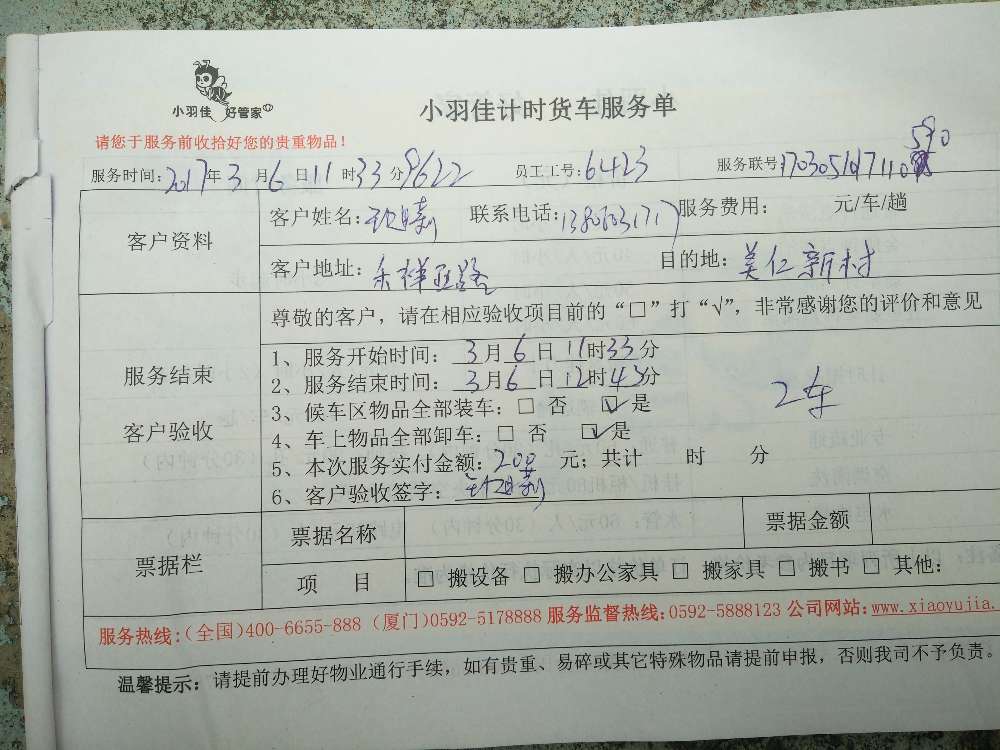 小羽佳 好管家
小羽佳计时货车服务单
请您于服务前收拾好您的贵重物品！
服务时间：2017年3月6日11时33分9622 员工工号：6423 服务联号：
客户资料
客户姓名： 联系电话： 服务费用： 元/车/趟
客户地址： 目的地：美仁新村
服务结束
客户验收
尊敬的客户，请在相应验收项目前的“□”打“√”，非常感谢您的评价和意见
1、服务开始时间：3月6日11时33分
2、服务结束时间：3月6日12时43分
3、候车区物品全部装车：□ 否 ☑是
4、车上物品全部卸车：□ 否 ☑是
2车
5、本次服务实付金额：200 元；共计 时 分
6、客户验收签字：
票据栏
票据名称 票据金额
项 目 □ 搬设备 □ 搬办公家具 □ 搬家具 □ 搬书 □ 其他：
服务热线：(全国)400-6655-888 (厦门)0592-5178888 服务监督热线：0592-5888123 公司网站：www.xiaoyujia.
温馨提示：请提前办理好物业通行手续，如有贵重、易碎或其它特殊物品请提前申报，否则我司不予负责。